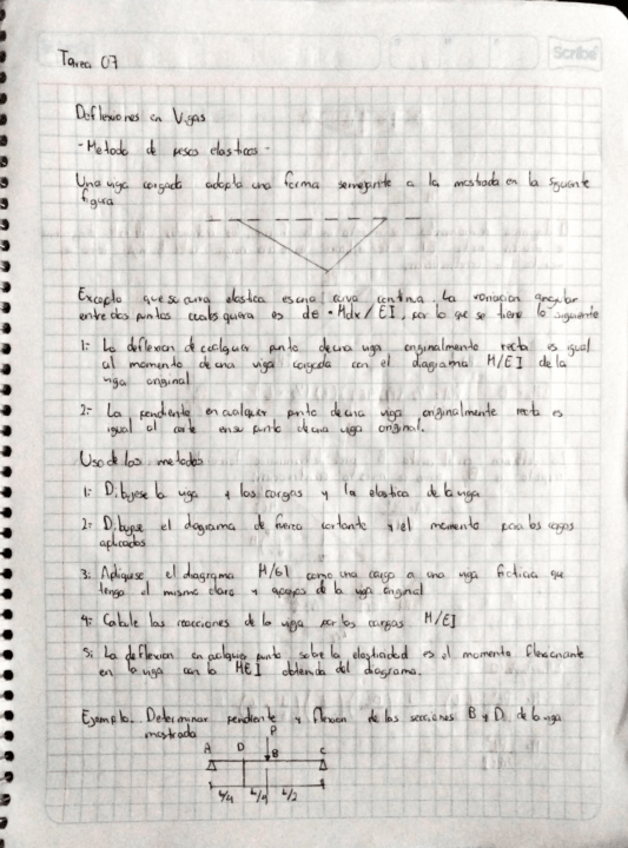 Scribe
Tarea 07
Deflexiones en Vigas
- Metodo de pesos elasticos -
Una viga cargada adopta una forma semejante a la mostrada en la siguiente
figura
Excepto que su curva elastica es una curva continua. La variacion angular
entre dos puntos cualesquiera es dθ = Mdx / EI, por lo que se tiene lo siguiente
1:- La deflexion de cualquer punto de una viga originalmente recta es igual
al momento de una viga cargada con el diagrama M/EI de la
viga original
2:- La pendiente en cualquer punto de una viga originalmente recta es
igual al corte en su punto de una viga original.
Uso de los metodos
1: Dibujese la viga y las cargas y la elastica de la viga
2: Dibujese el diagrama de fuerza cortante y el momento para las cargas
aplicadas
3: Apliquese el diagrama M/EI como una carga a una viga ficticia que
tenga el mismo claro y apoyos de la viga original
4: Calcule las reacciones de la viga por las cargas M/EI
5: La deflexion en cualquer punto sobre la elasticidad es el momento flexionante
en la viga con la MEI obtenida del diagrama.
Ejemplo. Determinar pendiente y flexion de las secciones B y D de la viga
mostrada
P
A D B C
L/4 L/4 L/2